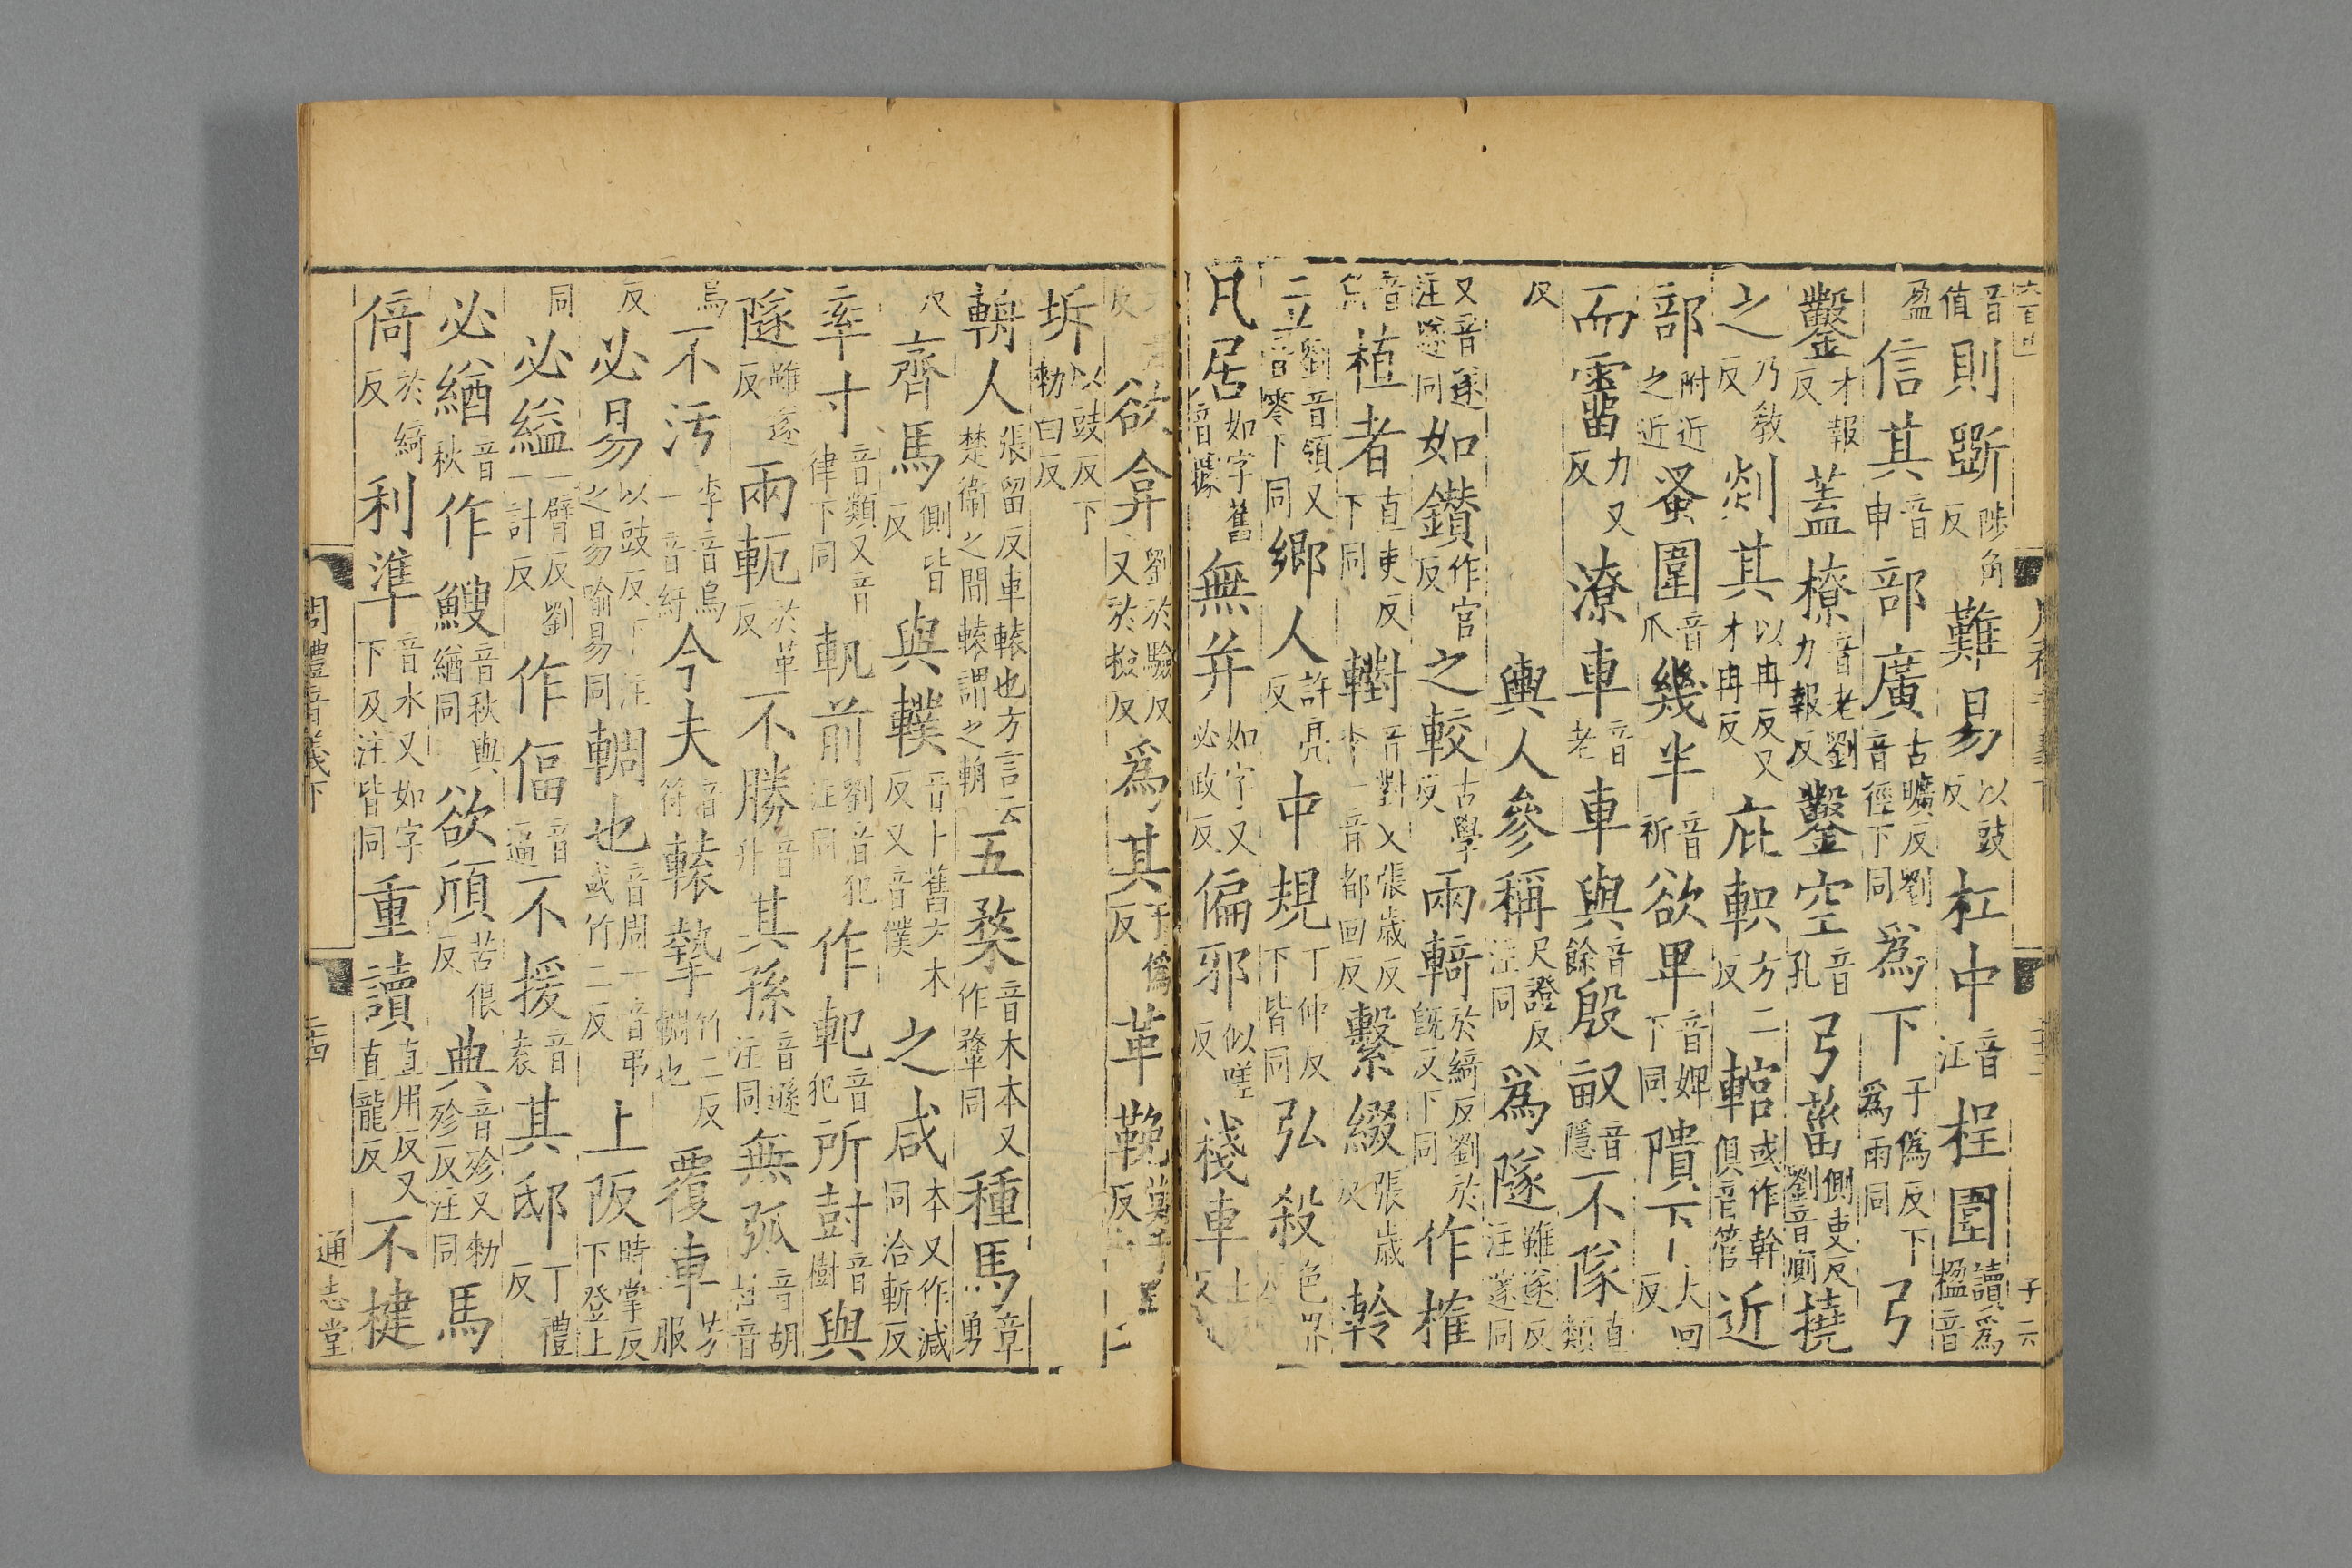 音值則斷陟角反難易以豉反杠中音江桯圍讀爲楹音
盈信其音申部廣古曠反劉音徑下同爲下于僞反下爲雨同弓
鑿才報反蓋橑音老劉力報反鑿空音孔弓菑側吏反劉音廁撓
之乃敎反剡其以冉反又才冉反庇軹方二反輨或作幹俱音管近
部附近之近蚤圍音爪幾半音祈欲卑音婢下同隤下大回反
而霤力又反潦車音老車與音餘殷畝音隱不隊直類
反輿人參稱尺證反注同爲隧雖遂反注遂同
又音遂注邃同如鑽作官反之較古學反兩輢於綺反劉於旣反下同作榷
音植者直吏反下同轛音對又張歲反一音都回反繫綴張歲反軨
立劉音領又音零下同鄉人許亮反中規丁仲反下皆同弘殺色界
凡居如字舊音據無并如字又必政反偏邪似嗟反棧車
反欲弇劉於驗反又於撿反爲其于僞反革鞔
坼勑白反以豉反下
輈人張留反車轅也方言云楚衞之間轅謂之輈五楘音木本又作鞪同種馬章勇
反齊馬側皆反與轐音卜舊方木反又音僕之咸本又作減同洽斬反
率寸音類又音律下同軓前劉音犯注同作軓音犯所尌音樹與
隧雖遂反兩軛於革反不勝音升其孫音遜注同無弧音胡
烏不汚李音烏一音紆今夫音符轅摯竹二反輖也覆車芳服
反必易以豉反下注之易喻易同輖也音周一音弔或竹二反上阪時掌反下登上
同必縊一臂反劉一計反作偪音逼不援音袁其邸丁禮反
必緧音秋作䲡音秋與緧同欲頎苦佷反典音殄又勑殄反注同馬
倚於綺反利準音水又如字下及注皆同重讀直用反又直龍反不楗
周禮音義下
通志堂